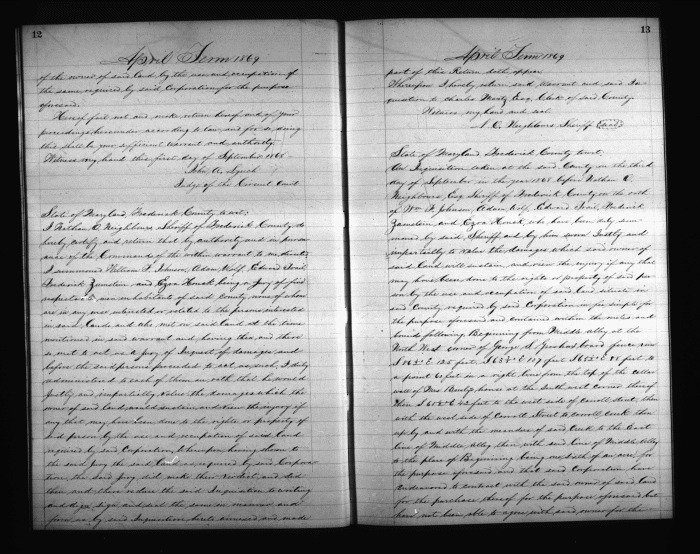 12
April Term 1869
of the owner of said Land by the use and occupation of
the same required by said Corporation for the purpose
aforesaid.
Hereof fail not and make return hereof and of your
proceedings hereunder according to law, and for so doing
this shall be your sufficient warrant and authority.
Witness my hand this first day of September 1868
John A. Lynch
Judge of the Circuit Court
State of Maryland, Frederick County to wit:
I Nathan C. Neighbours Sheriff of Frederick County do
hereby certify and return that by authority and in pursu-
ance of the Commands of the within warrant to me directed
I summoned William F. Johnson, Adam Kolf, Edward
Frederick and Ezra Houck being a Jury of five
men inhabitants of said County none of whom
are in any wise interested or related to the persons interested
in said Lands and who met on said Land at the time
mentioned in said warrant and having then and there
as a Jury of Inquest of damages and
before the said persons proceeded to act as such, I duly
administered to each of them an oath that he would
justly and impartially value the damages which the
owner of said Land would sustain and view the injury if
any that may have been done to the rights or property of
said person by the use and occupation of said Land
required by said Corporation, Whereupon having shown to
the said Jury the said Land as required by said Corpora-
tion, the said Jury did make their Verdict, and did
then and there reduce the said Inquisition to writing
and sign and seal the same in manner and
form as by said Inquisition hereto annexed and made
13
April Term 1869
part of this Return doth appear
Therefore I hereby return said warrant and said In-
quisition to Charles Mantz Esq. Clerk of said County
Witness my hand and seal
N. C. Neighbours Sheriff (Seal)
State of Maryland Frederick County to wit.
An Inquisition taken at the said County on the third
day of September in the year 1868 before Nathan C.
Neighbours, Esq. Sheriff of Frederick County on the oath
of Wm F. Johnson, Adam Kolf, Edward Frederick
and Ezra Houck who have been duly sum-
moned by said Sheriff and by him sworn Justly and
impartially to value the damages which said owner of
said Land will sustain and view the injury if any that
may have been done to the rights or property of said per-
son by the use and occupation of said Land situate in
said County required by said Corporation in fee simple for
the purpose aforesaid and contained within the metes and
bounds following Beginning from Middle Alley at the
North West corner of George board fence, run
E 125 feet, E 117 feet E feet to
a point feet in a right line from the top of the cellar
wall of house at the South west corner thereof
Then E 42 feet to the west side of Carroll Street, then
with the west side of Carroll Street to Carroll Creek then
up by and with the meanders of said Creek to the East
line of Middle Alley, then with said line of Middle Alley
to the place of Beginning being of an acre, for
the purpose aforesaid and that said Corporation have
endeavored to contract with the said owner of said Land
for the purchase thereof for the purpose aforesaid but
have not been able to agree with said owner for the